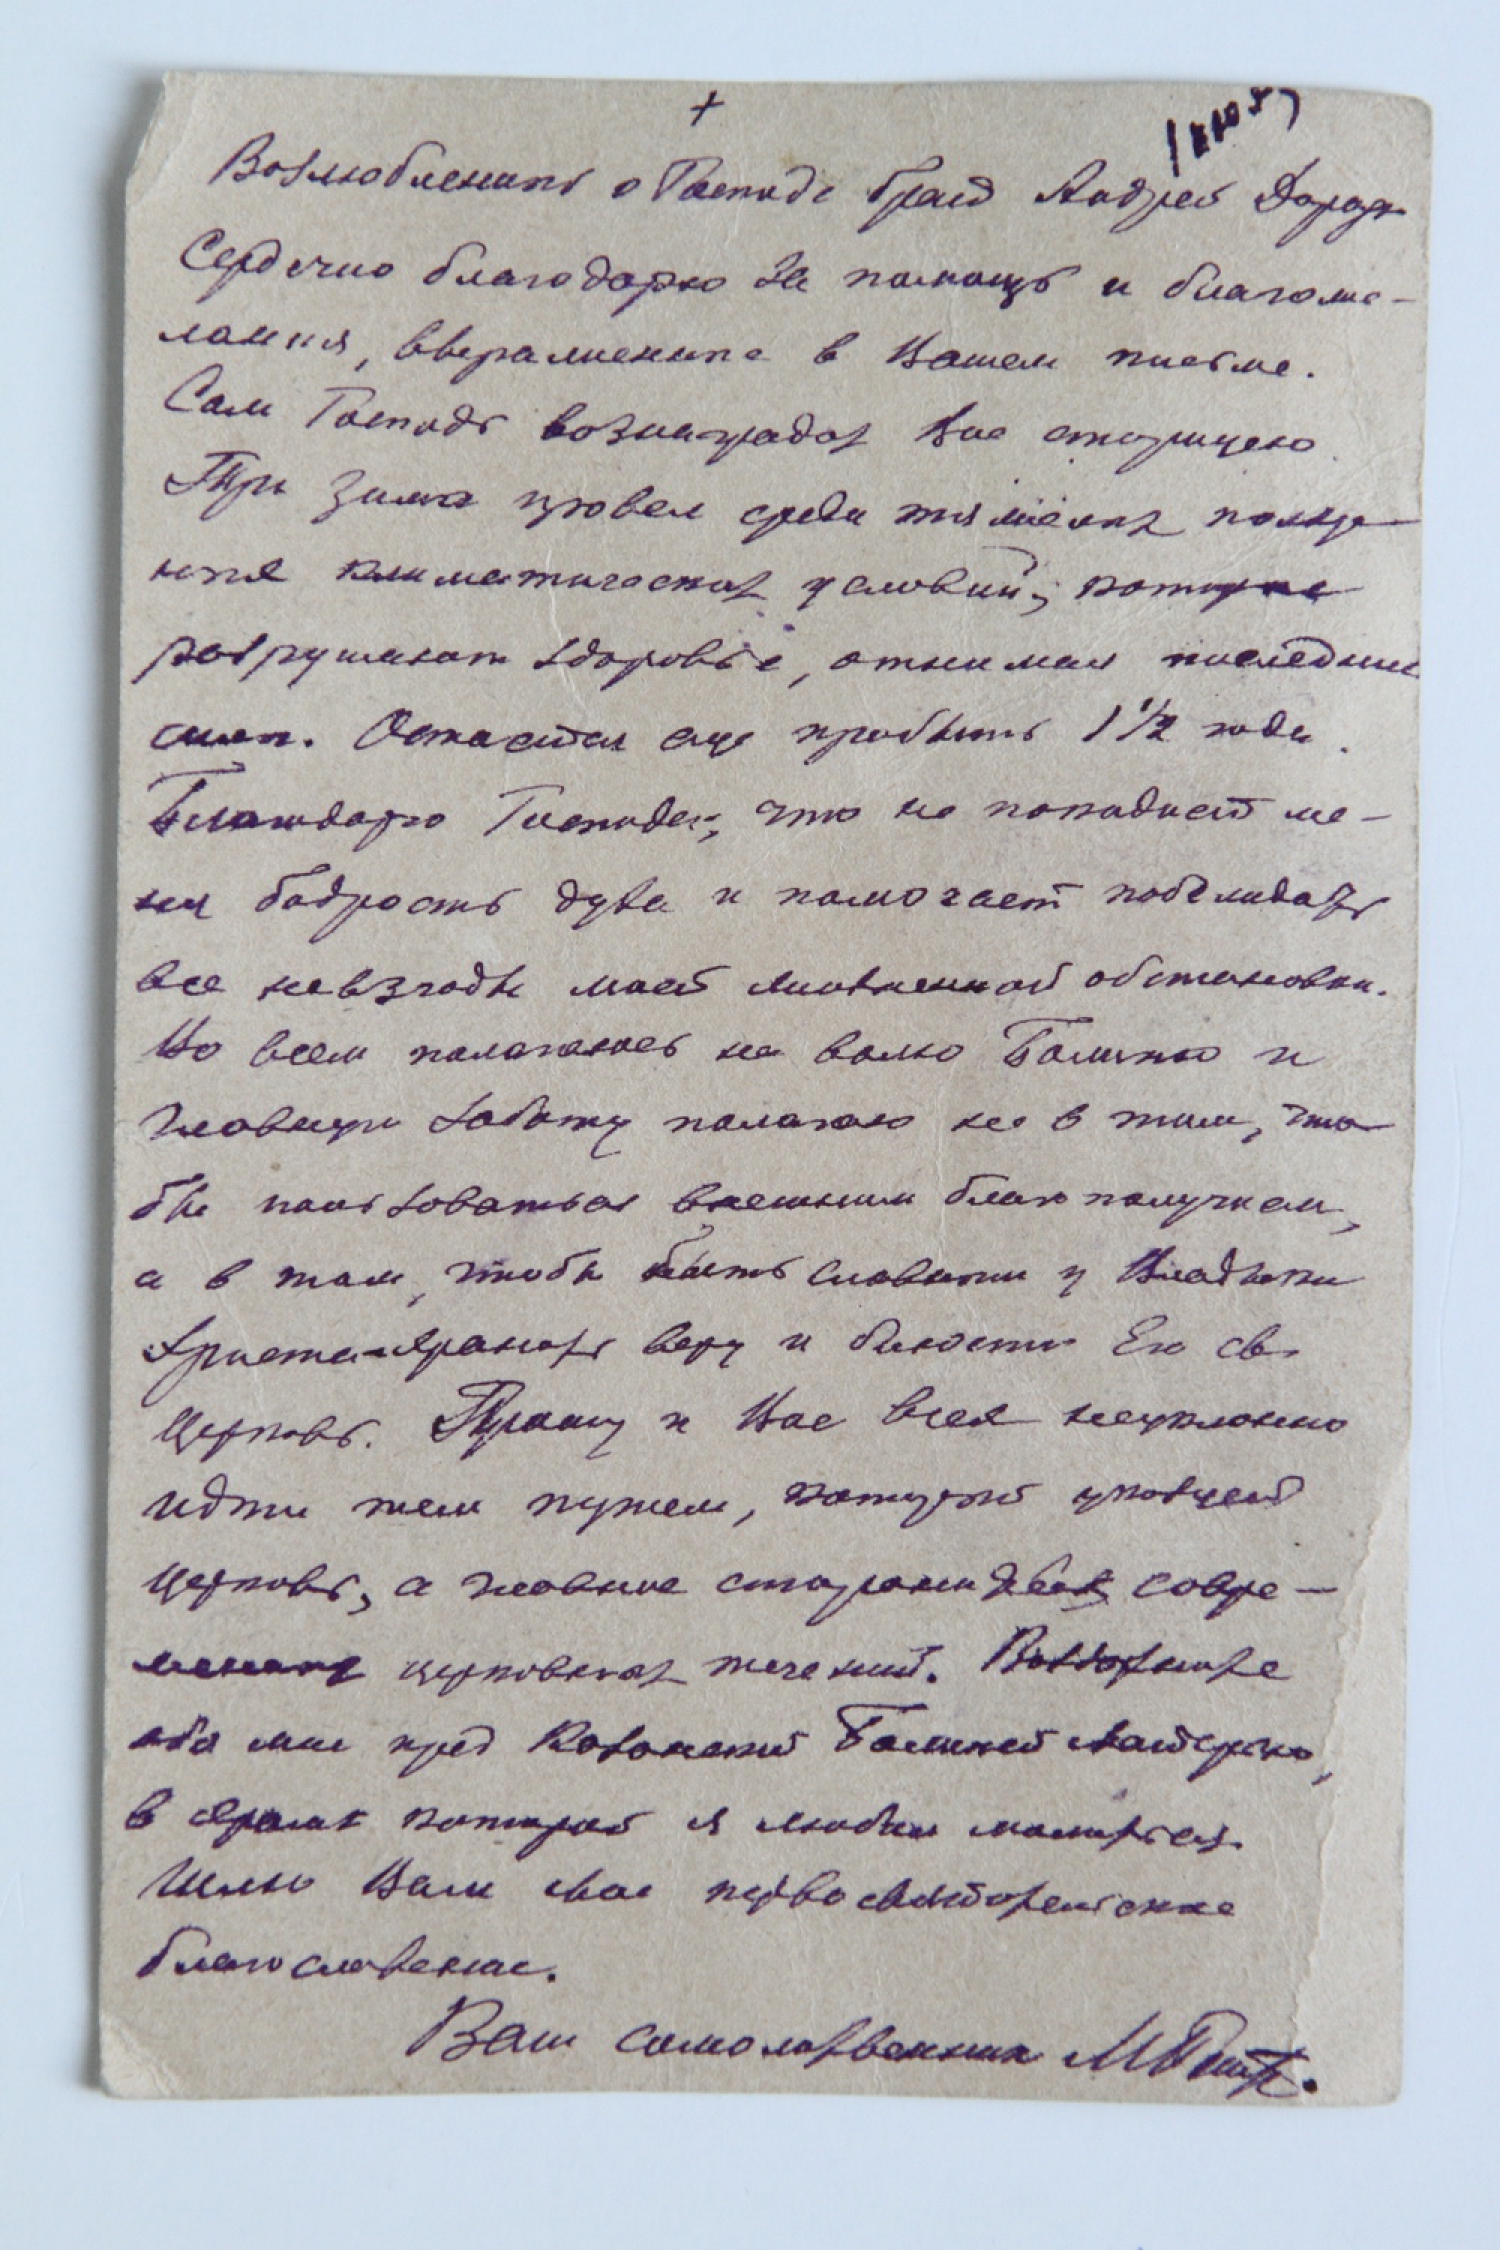 +
Возлюбленный о Господе брат Андрей
Сердечно благодарю за помощь и благоже-
лания, выраженные в Вашем письме.
Сам Господь вознаградит Вас сторицею.
Три зимы провел среди тяжелых поляр-
ных климатических условий, которые
разрушают здоровье, отнимая последние
силы. Остается еще пробыть 1 ½ года.
Благодарю Господа, что не покидает ме-
ня бодрость духа и помогает побеждать
все невзгоды моей жизненной обстановки.
Во всем полагаюсь на волю Божию и
главную заботу полагаю не в том, что
бы пользоваться внешним благополучием,
а в том, чтобы быть у Владыки
Христа хранить веру и Его св.
Церковь. Прошу и Вас всех неуклонно
идти тем путем, который указует
Церковь, а главное современных
церковных течений. Воздохните
обо мне пред Казанской Божией Матерью,
в храме которой я любил молиться.
Шлю Вам свое первосвятительское
благословение.
Ваш сомолитвенник М Петр.